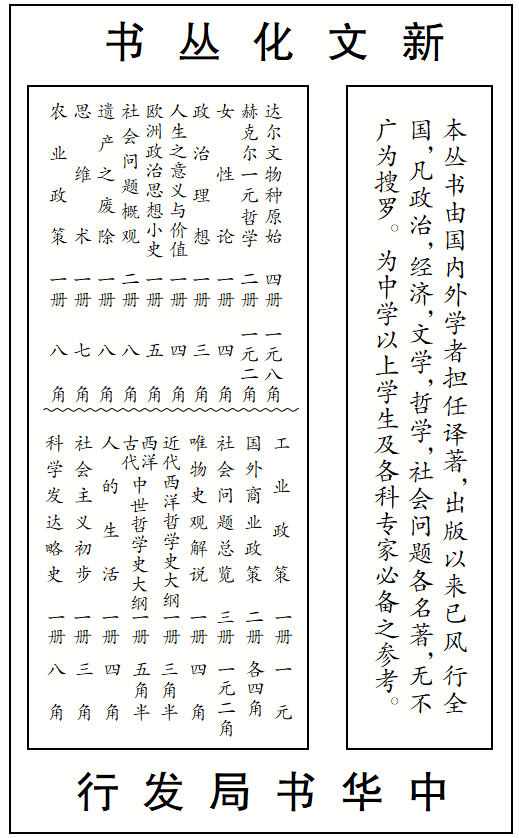 新文化丛书
本丛书由国内外学者担任译著，出版以来已风行全
国，凡政治，经济，文学，哲学，社会问题各名著，无不
广为搜罗。为中学以上学生及各科专家必备之参考。
达尔文物种原始 四册 一元八角
赫克尔一元哲学 二册 一元二角
女性论 一册 四角
政治理想 一册 三角
人生之意义与价值 一册 四角
欧洲政治思想小史 一册 五角
社会问题概观 二册 八角
遗产之废除 一册 八角
思维术 一册 七角
农业政策 一册 八角
工业政策 一册 一元
国外商业政策 二册 各四角
社会问题总览 三册 一元二角
唯物史观解说 一册 四角
近代西洋哲学史大纲 一册 三角半
西洋古代中世哲学史大纲 一册 五角半
人的生活 一册 四角
社会主义初步 一册 三角
科学发达略史 一册 八角
中华书局发行